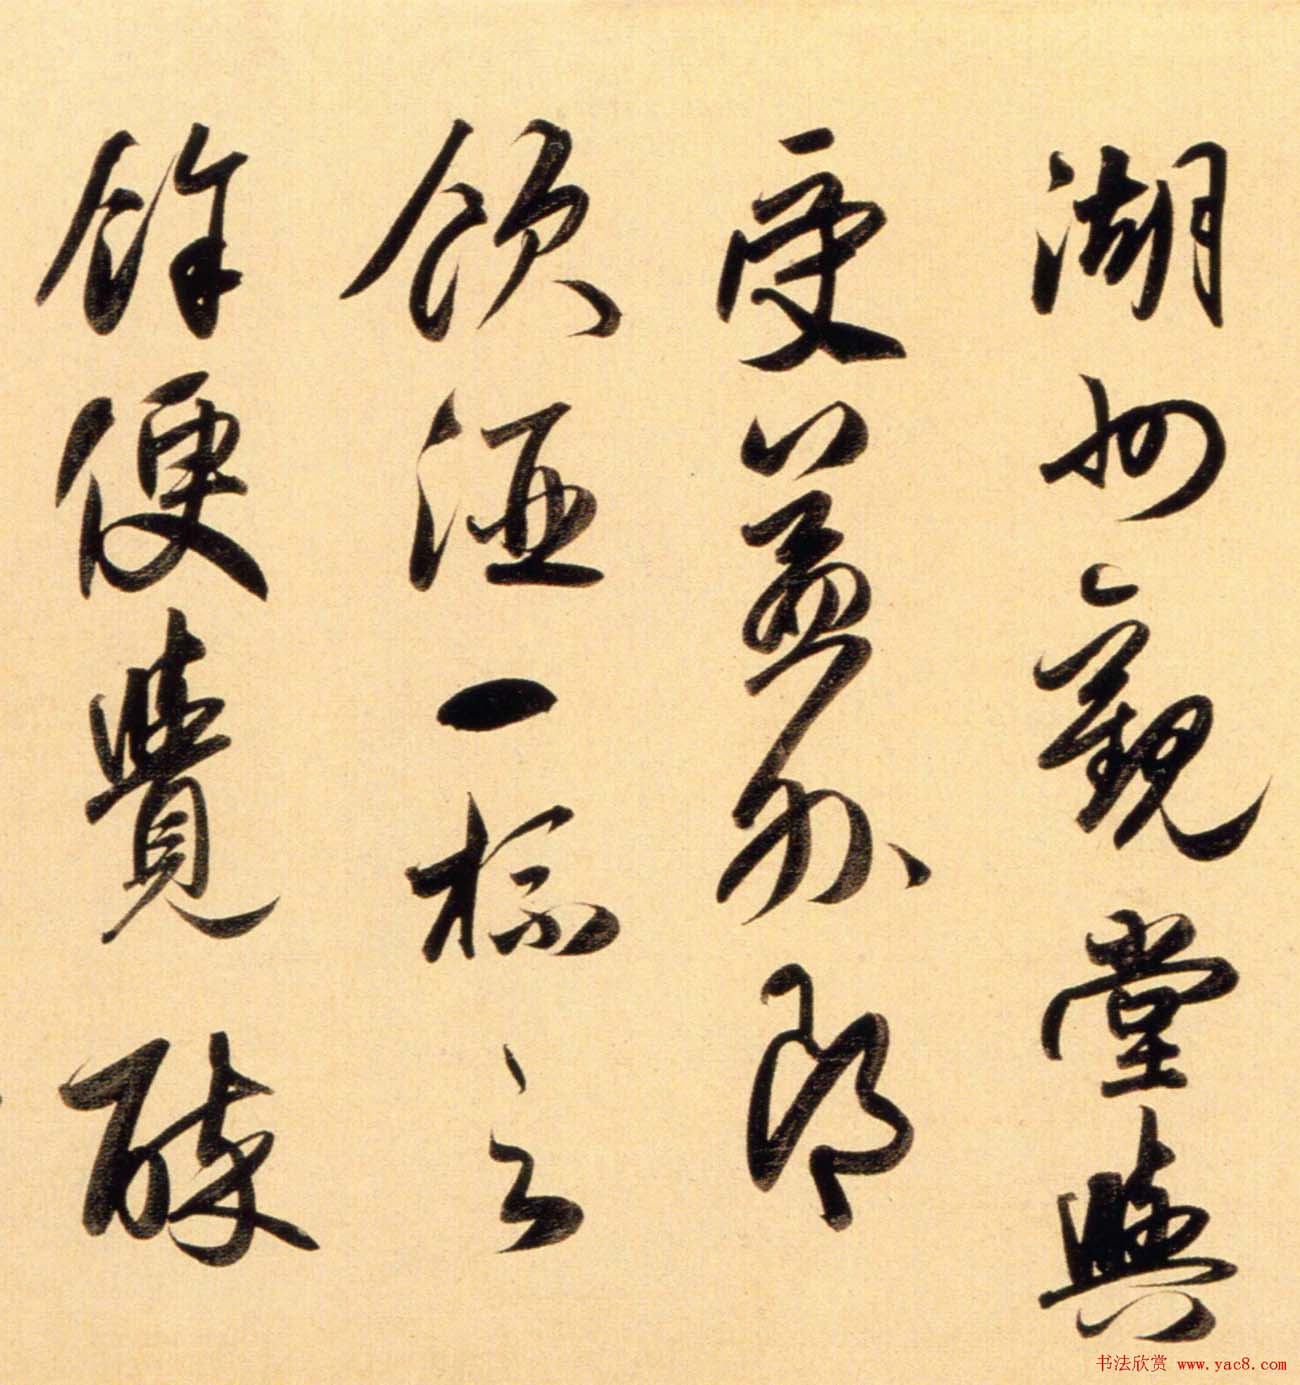 湖州觀堂與
受益外郎
飲酒一杯之
餘便覺醉
书法欣赏 www.yac8.com